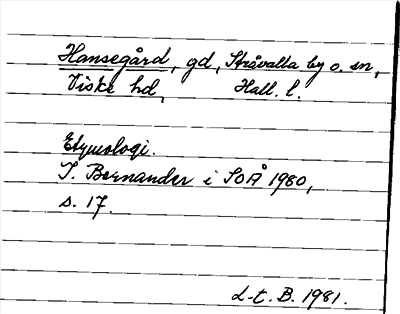 Hansegård, gd, Stråvalla by o. sn,
Viske hd, Hall. l.
Etymologi.
I. Bernander i SOÅ 1980,
s. 17.
L-t. B. 1981.